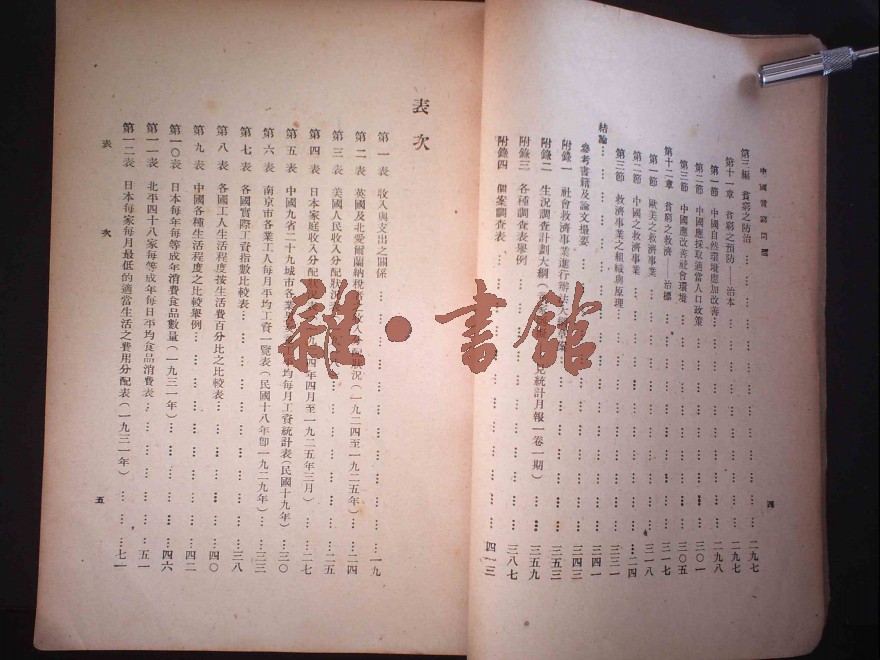 中國貧窮問題
第三編 貧窮之防治……二九七
第十一章 貧窮之預防——治本……二九七
第一節 中國自然環境應加改善……二九八
第二節 中國應採取適當人口政策……三〇一
第三節 中國應改善社會環境……三〇五
第十二章 貧窮之救濟——治標……三一七
第一節 歐美之救濟事業……三一八
第二節 中國之救濟事業
第三節 救濟事業之組織與原理……三三一
結論……三四一
參考書籍及論文撮要……三四三
附錄一 社會救濟事業進行辦法大綱……三五三
附錄二 生況調查計劃大綱 見統計月報一卷一期)……三五九
附錄三 各種調查表舉例……三八七
附錄四 個案調查表……四一三
四
表次
第一表 收入與支出之關係……一九
第二表 英國及北愛爾蘭納稅 收入分配狀況(一九二四至一九二五年)……二四
第三表 美國人民收入分配狀況……二五
第四表 日本家庭收入分配狀況 九二四年四月至一九二五年三月)……二七
第五表 中國九省二十九城市各業 平均每月工資統計表(民國十九年)……三〇
第六表 南京市各業工人每月平均工資一覽表(民國十八年卽一九二九年)……三三
第七表 各國實際工資指數比較表……三八
第八表 各國工人生活程度按生活費百分比之比較表……四〇
第九表 中國各種生活程度之比較舉例……四二
第一〇表 日本每年每等成年消費食品數量(一九三一年)……四六
第一一表 北平四十八家每等成年每日平均食品消費表……五一
第一二表 日本每家每月最低的適當生活之費用分配表(一九三一年)……七一
表次
五
雜·書館